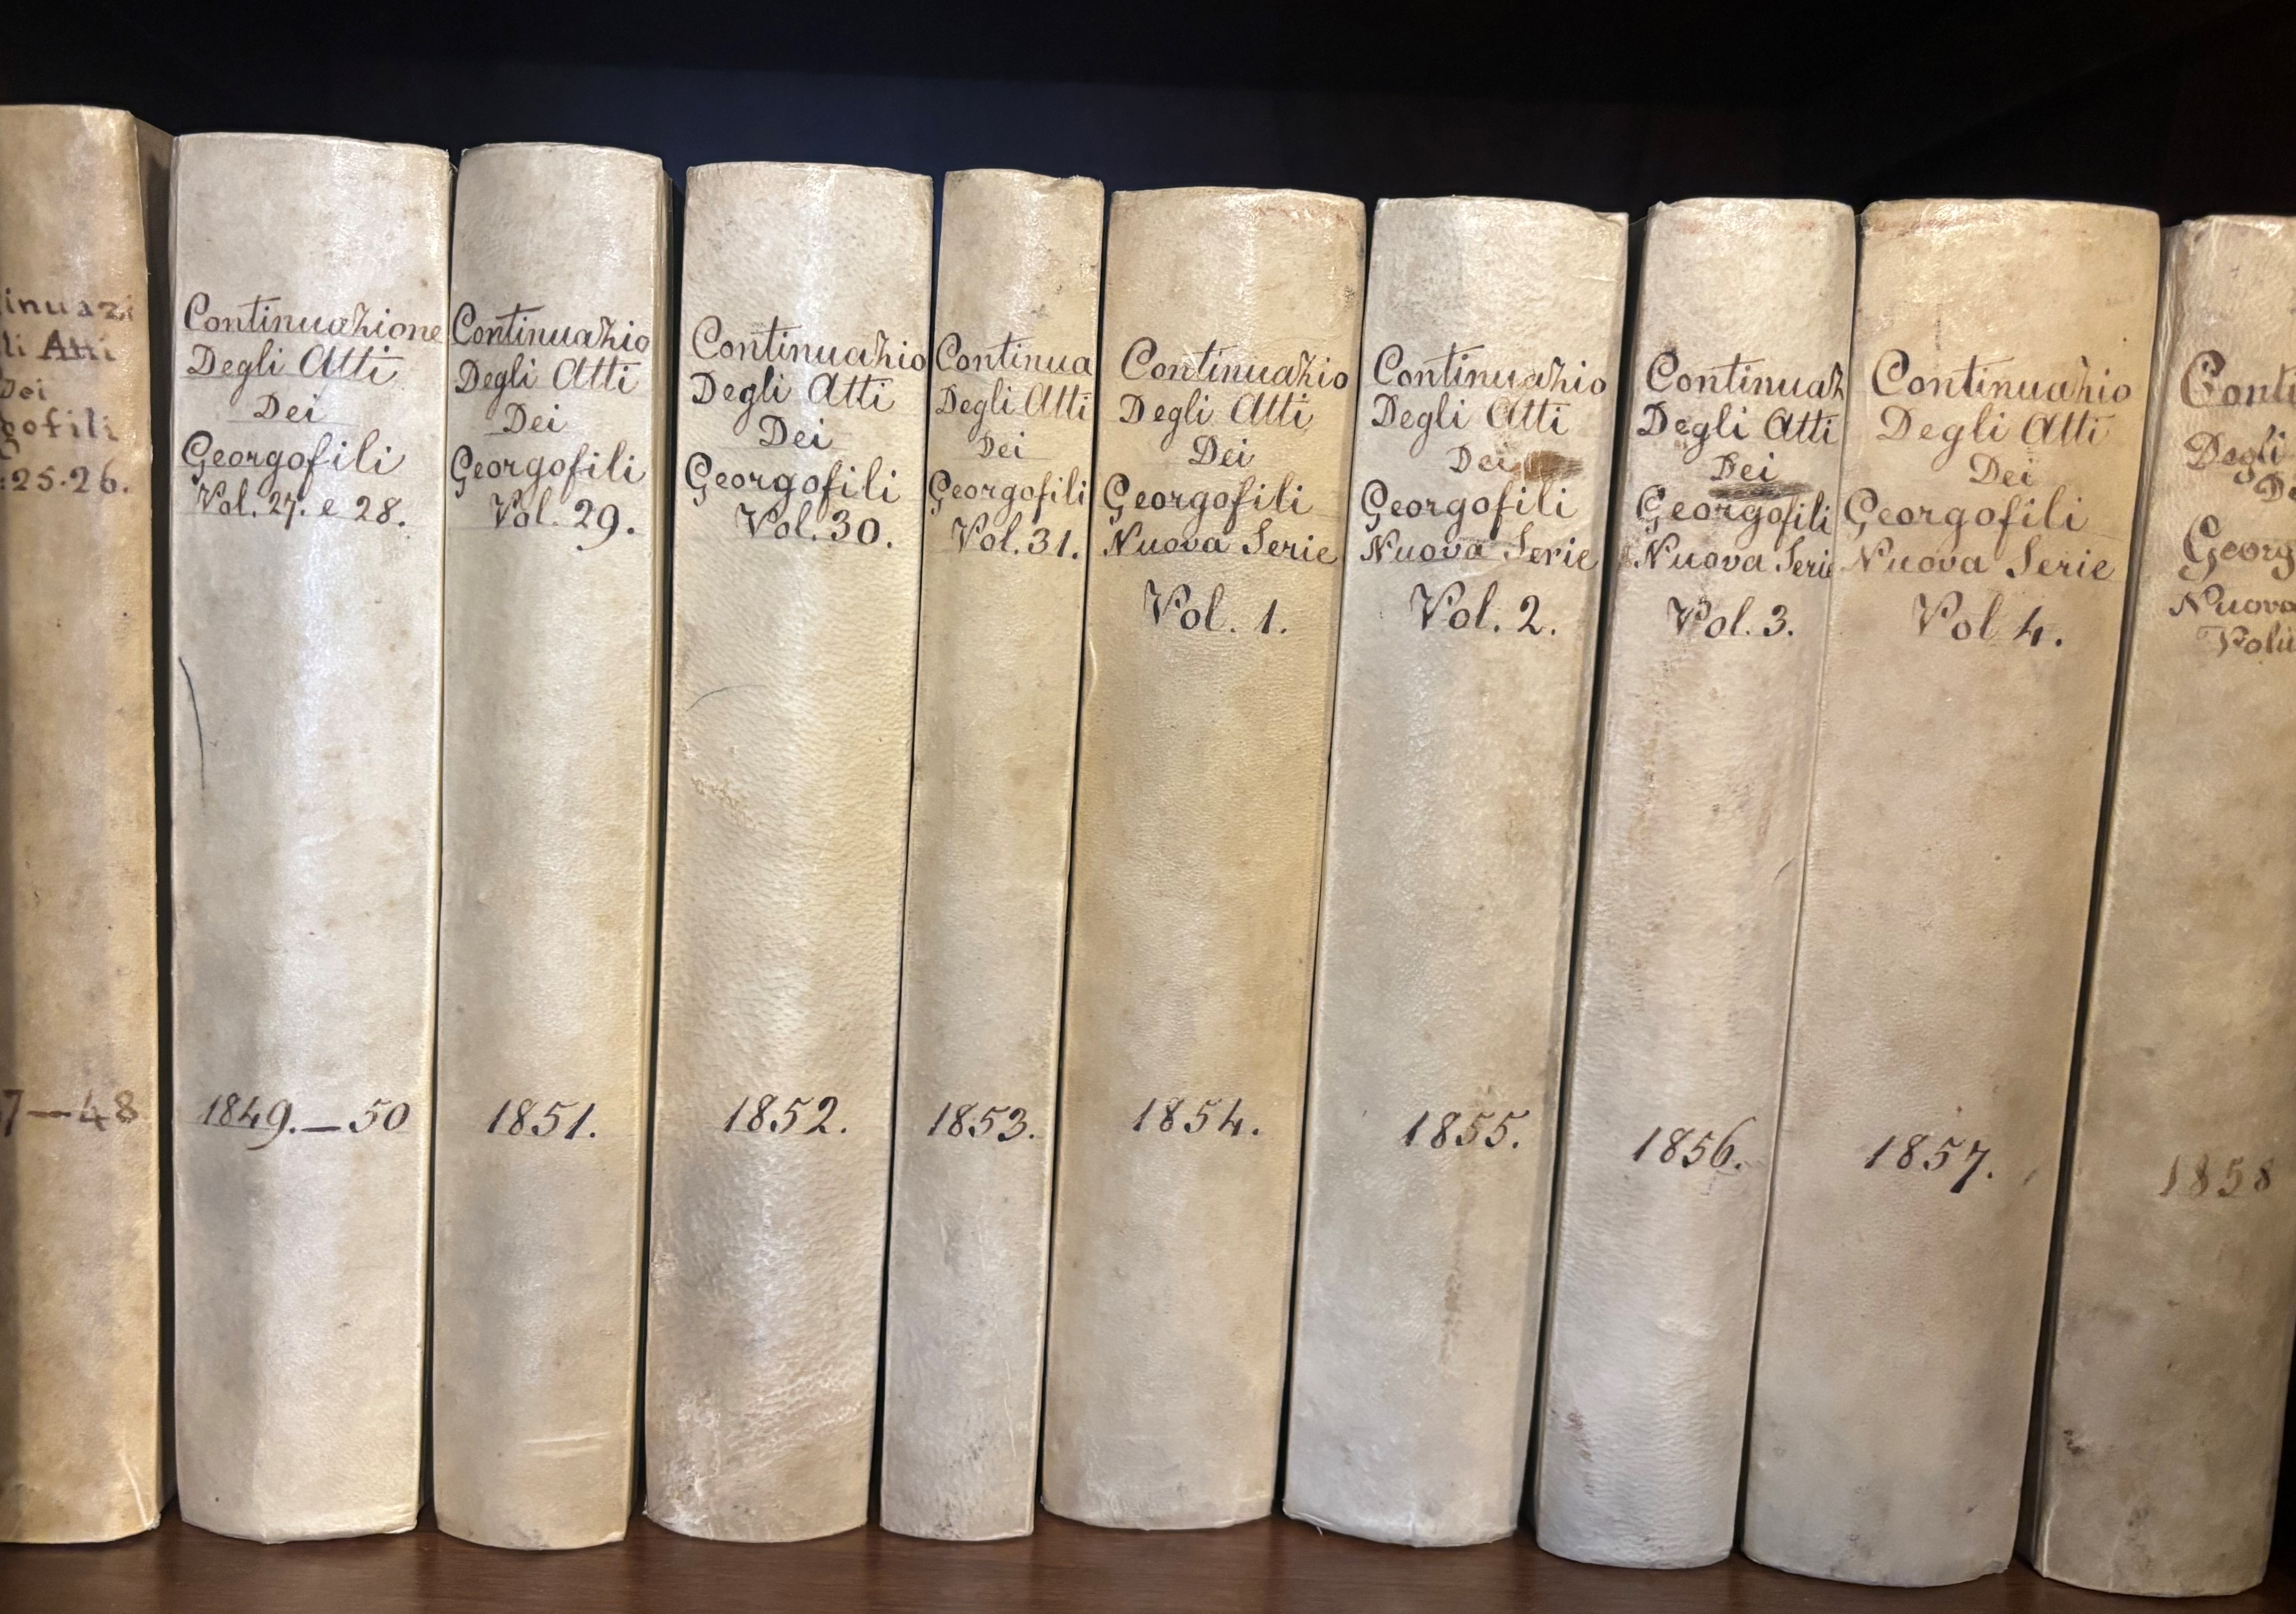 inuazi
li Atti
Dei
gofili
:25.26.
7—48
Continuazione
Degli Atti
Dei
Georgofili
Vol. 27. e 28.
1849.—50
Continuazio
Degli Atti
Dei
Georgofili
Vol. 29.
1851.
Continuazio
Degli Atti
Dei
Georgofili
Vol. 30.
1852.
Continua
Degli Atti
Dei
Georgofili
Vol. 31.
1853.
Continuazio
Degli Atti
Dei
Georgofili
Nuova Serie
Vol. 1.
1854.
Continuazio
Degli Atti
Dei
Georgofili
Nuova Serie
Vol. 2.
1855.
Continuaz
Degli Atti
Dei
Georgofili
Nuova Serie
Vol. 3.
1856.
Continuazio
Degli Atti
Dei
Georgofili
Nuova Serie
Vol 4.
1857.
Conti
Degli
De
Georg
Nuova
Volu
1858